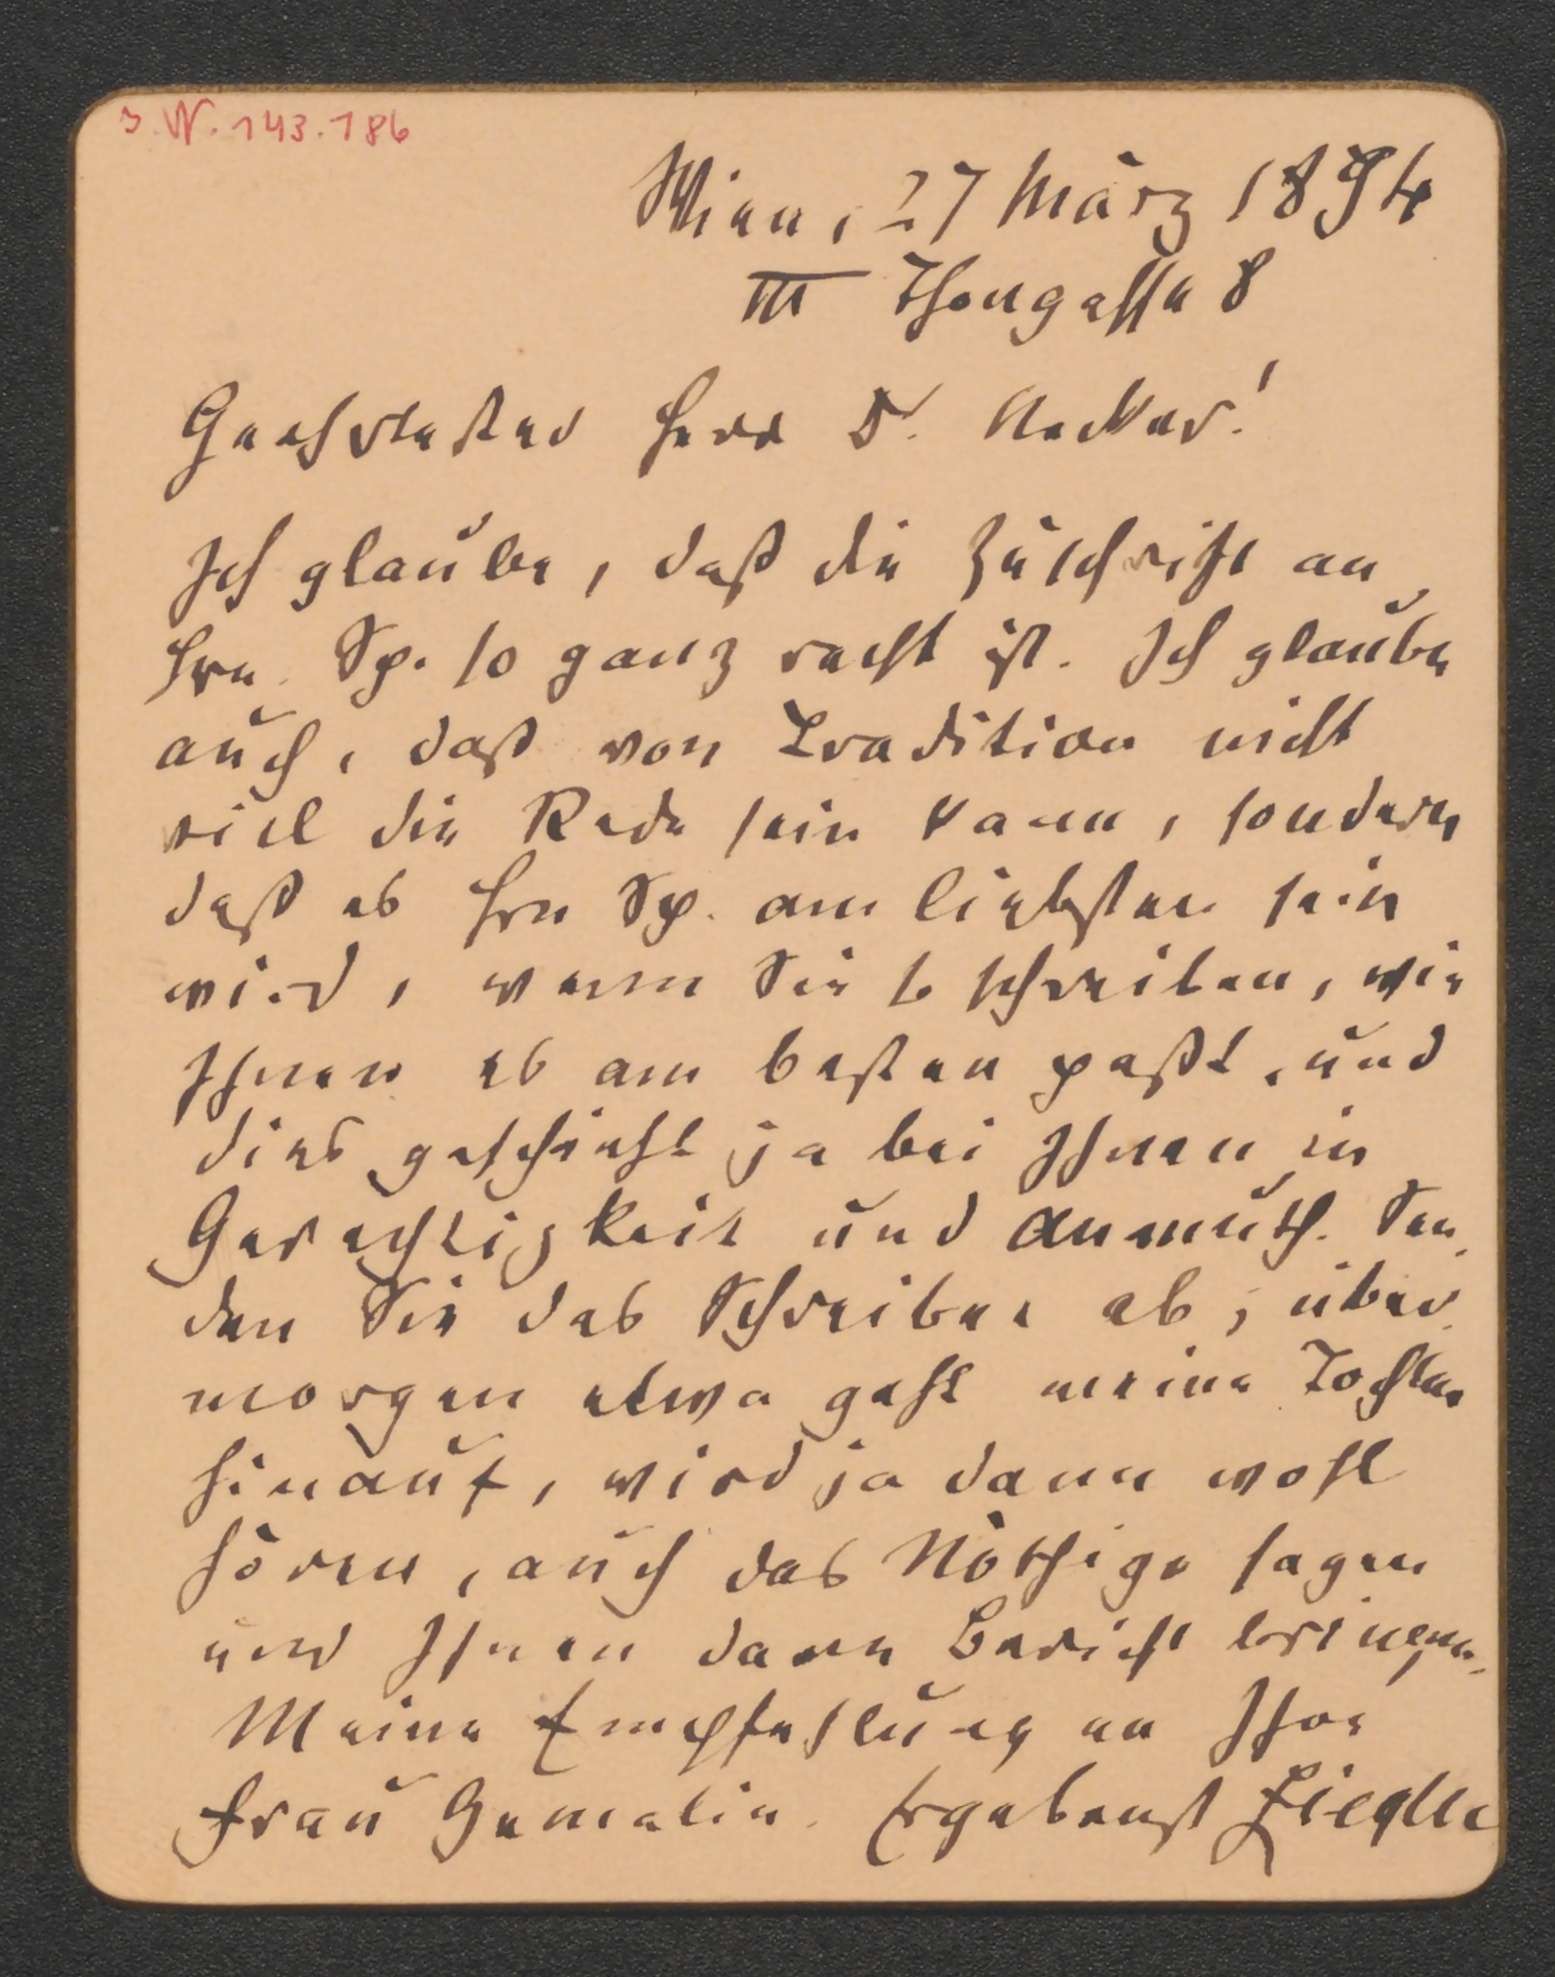 J.N. 143.186
Wien, 27 März 1894
III Thongasse 8
Geehrtester Herr Dr. Necker!
Ich glaube, daß die Zuschrift an
Hrn. Sp. so ganz recht ist. Ich glaube
auch, daß von Tradition nicht
viel die Rede sein kann, sondern
daß es Hrn Sp. am liebsten sein
wird, wenn Sie so schreiben, wie
Ihnen es am besten paßt, und
dies geschieht ja bei Ihnen in
Gerechtigkeit und Anmuth. Sen-
den Sie das Schreiben ab; über-
morgen etwa geht meine Tochter
hinauf, wird ja dann wohl
hören, auch das Nöthige sagen
und Ihnen dann Bericht bringen.
Meine Empfehlung an Ihre
Frau Gemalin. Ergebenst